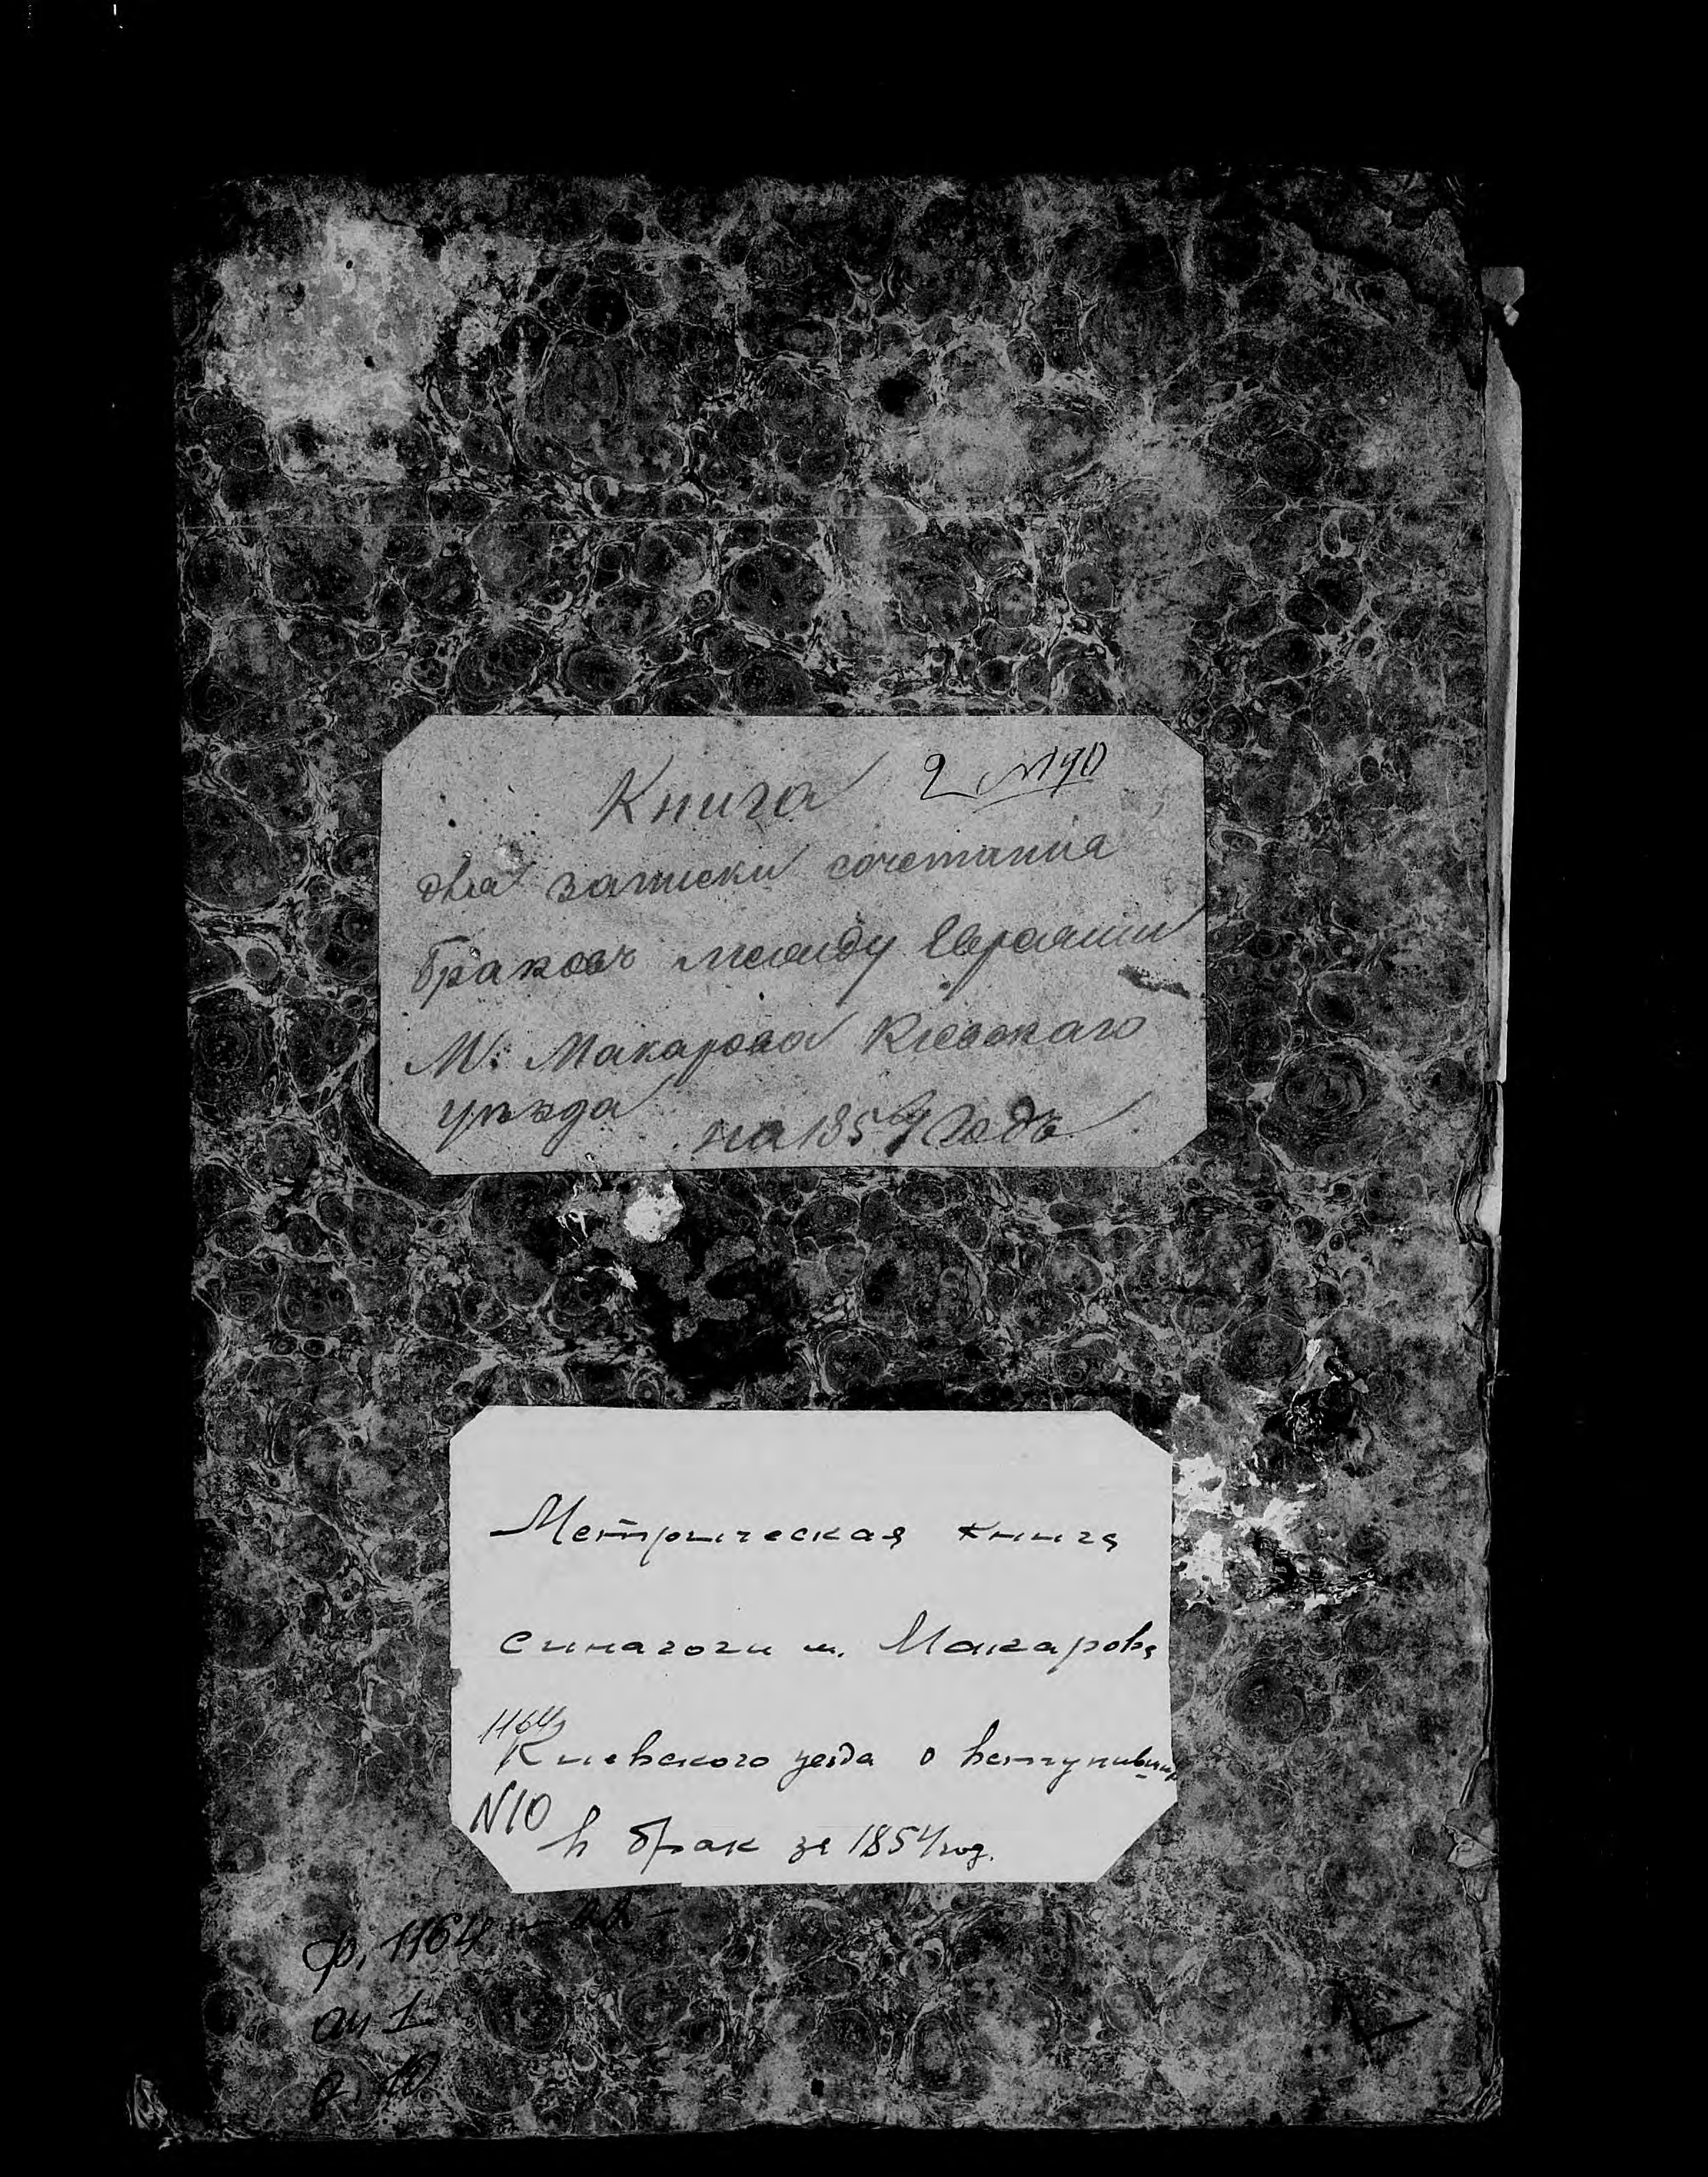 Книга 2 №
для записки сочетания
браковъ между Евреями
М. Макарова Киевскаго
уѣзда на 1854 Годъ
Метрическая книга
синагоги м. Макарова
1164
Киевского уезда о вступивших
N10 в брак за 1854 год.
ф. 1164
оп 1
д. 10